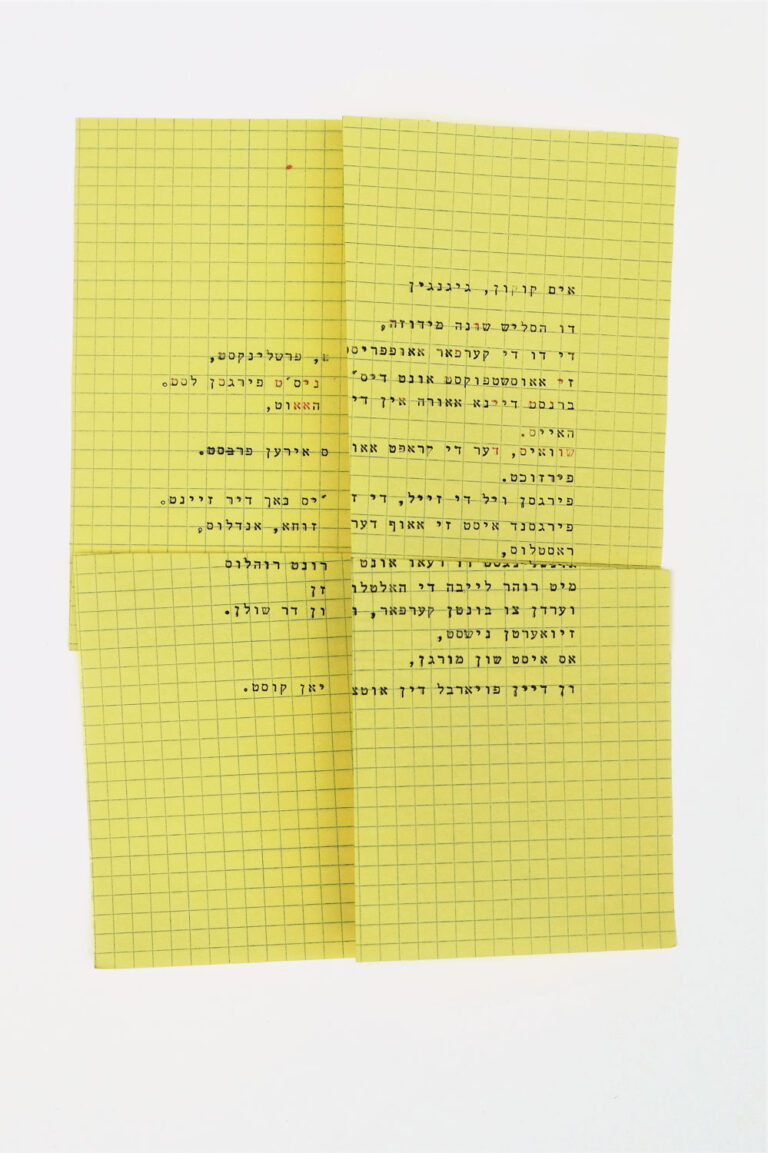 אים קוקון, גיגנגין
דו הסליש שונה מידוזה,
די דו די קערפאר אאופפריסט, פרשלינקסט,
זי אאוסשטפוקסט אונט דיס״ ניס״ט פירגסן לסט.
ברנסט דיינא אאורה אין די האאוט,
האייס.
שוואיס, דער די קראפט אאוס אירען פרבסט.
פירזוכט.
פירגסן ויל די זייל, די ז״יס נאך דיר זיינט.
פירגסנד איסט זי אאוף דער זוחא, אנדלוס,
ראסטלוס,
רונט רוהלוס
מיט רוהר לייבה די האלטלוזן
וערדן צו בונטן קערפאר, וון דר שולן.
זיוארטן נישסט,
אס איסט שון מורגן,
ון דיין פויארבל דין אוטציאן קוסט.